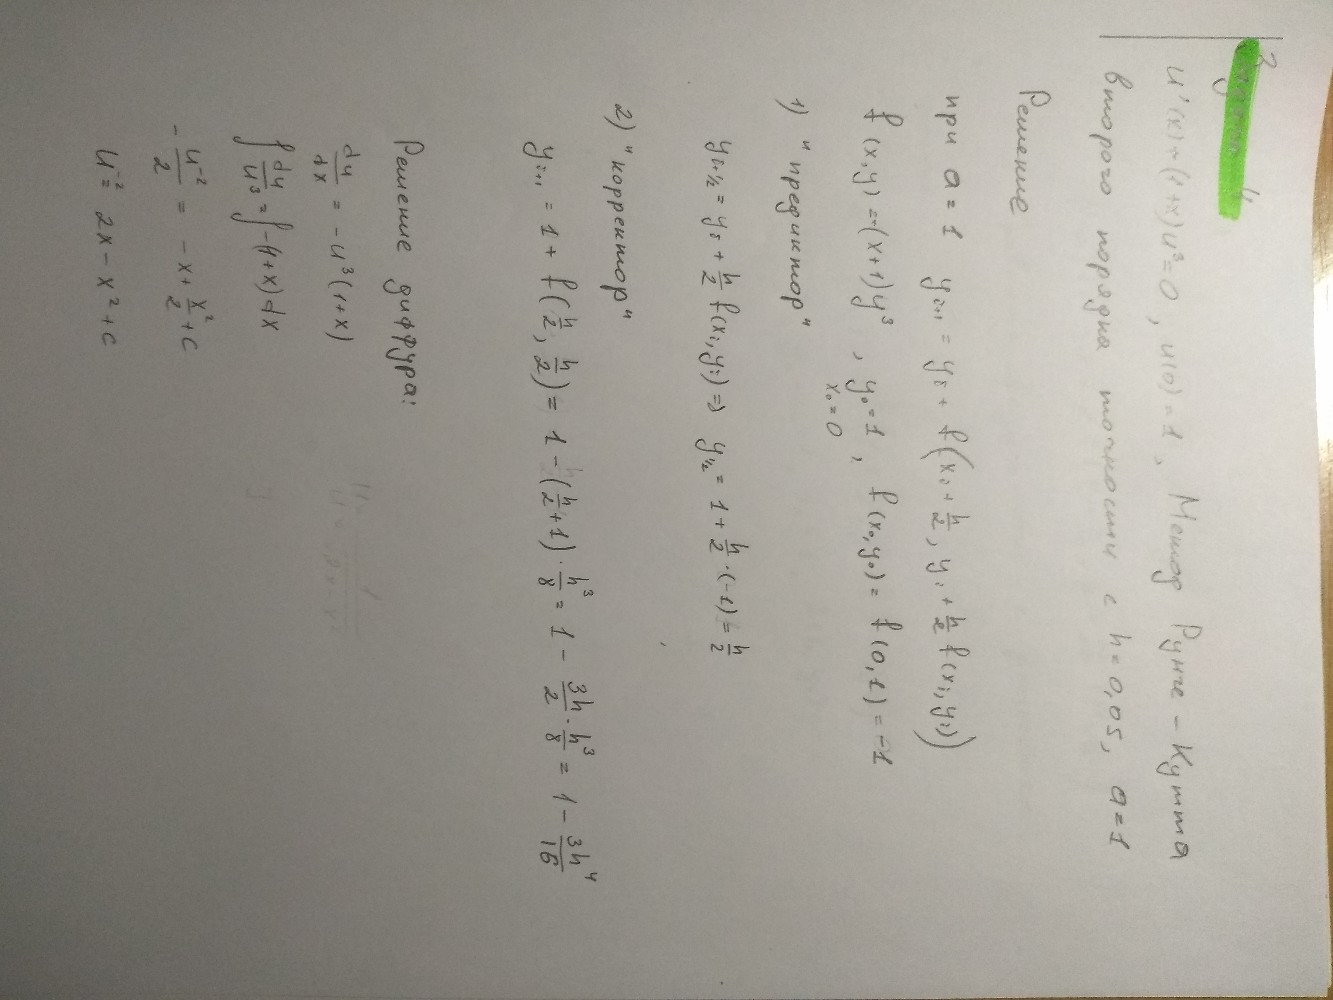 u'(x)+(1+x)u³=0, u(0)=1, Метод Рунге-Кутта
второго порядка точности с h=0,05, a=1
Решение
при a=1 y_{i+1} = y_i + f(x_i + h/2, y_i + h/2 f(x_i, y_i))
f(x,y) = -(x+1)y³, y_0=1, x_0=0, f(x_0, y_0) = f(0,1) = -1
1) "предиктор"
y_{i+½} = y_i + h/2 f(x_i, y_i) => y_½ = 1 + h/2 · (-1) = h/2
2) "корректор"
y_{i+1} = 1 + f(h/2, h/2) = 1 - (h/2 + 1) · h³/8 = 1 - 3h/2 · h³/8 = 1 - 3h⁴/16
Решение диффура:
du/dx = -u³(1+x)
∫ du/u³ = ∫ -(1+x)dx
- u⁻²/2 = -x + x²/2 + c
u⁻² = 2x - x² + c